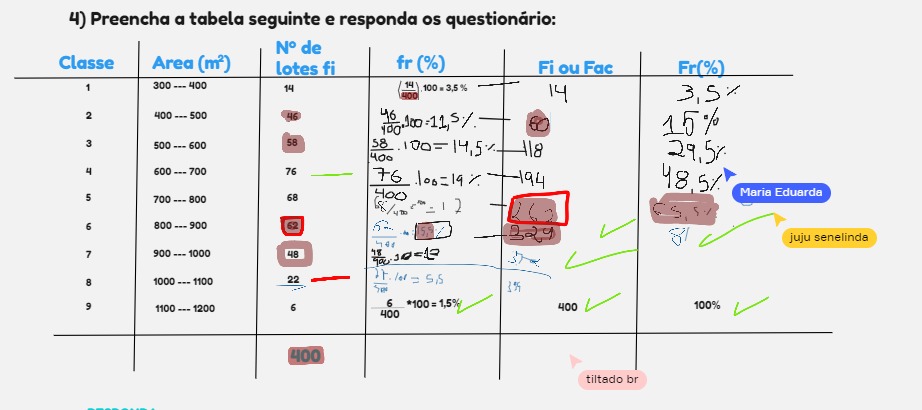 4) Preencha a tabela seguinte e responda os questionário:
Classe Area (m²) Nº de lotes fi fr (%) Fi ou Fac Fr(%)
1 300 --- 400 14 (14/400).100 = 3,5 % 14 3,5%
2 400 --- 500 46 46/400.100=11,5% 60 15%
3 500 --- 600 58 58/400.100=14,5% 118 29,5%
4 600 --- 700 76 76/400.100=19% 194 48,5%
5 700 --- 800 68 68/400 = 17 262
6 800 --- 900 62 15,5% 324 81
7 900 --- 1000 48 48/400
8 1000 --- 1100 22 .100 = 5,5
9 1100 --- 1200 6 6/400 *100 = 1,5% 400 100%
400
Maria Eduarda
juju senelinda
tiltado br